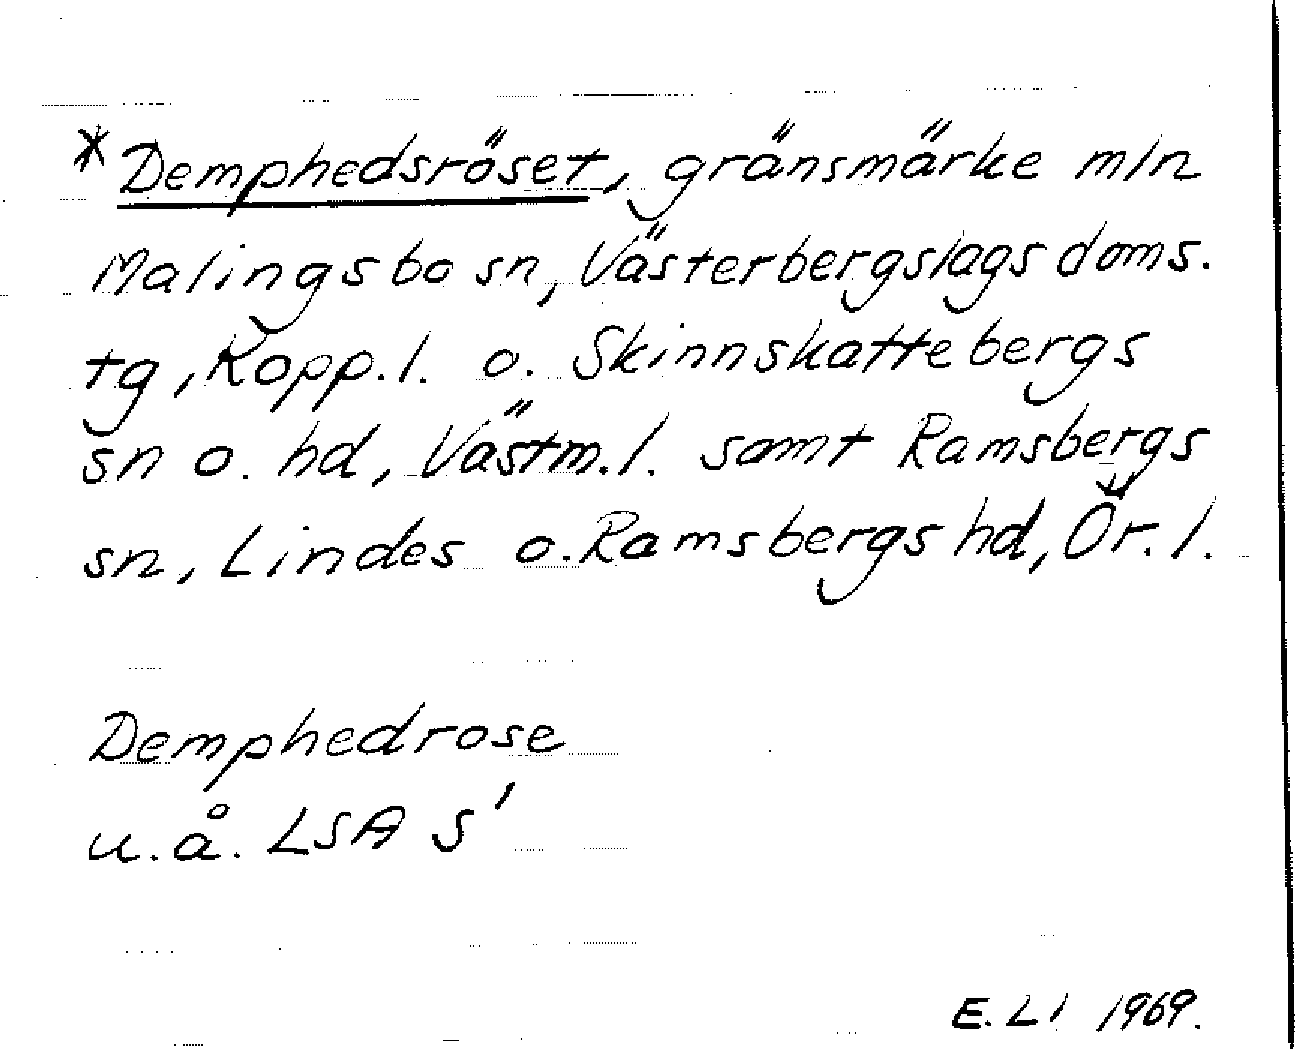 *Demphedsröset, gränsmärke mln
Malingsbo sn, Västerbergslags doms.
tg, Kopp.l. o. Skinnskattebergs
sn o. hd, Västm.l. samt Ramsbergs
sn, Lindes o. Ramsbergs hd, Ör.l.
Demphedrose
u.å. LSA S'
E. Li 1969.